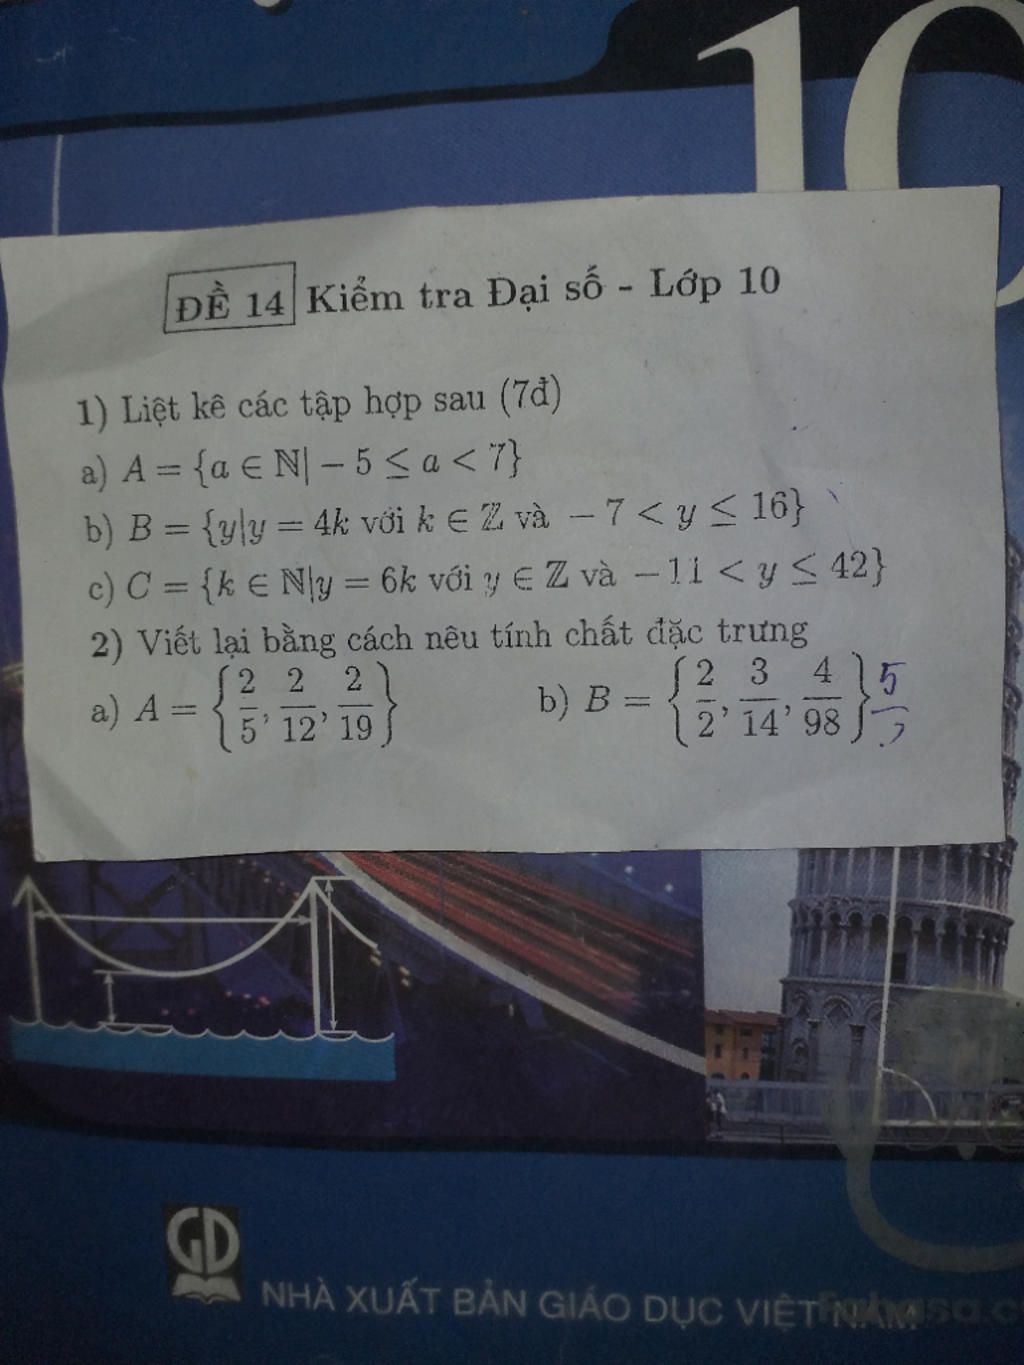 10
ĐỀ 14 Kiểm tra Đại số - Lớp 10
1) Liệt kê các tập hợp sau (7đ)
a) A = {a ∈ ℕ| − 5 ≤ a < 7}
b) B = {y|y = 4k với k ∈ ℤ và − 7 < y ≤ 16}
c) C = {k ∈ ℕ|y = 6k với y ∈ ℤ và −11 < y ≤ 42}
2) Viết lại bằng cách nêu tính chất đặc trưng
a) A = {2/5, 2/12, 2/19} b) B = {2/2, 3/14, 4/98} 5
GD
NHÀ XUẤT BẢN GIÁO DỤC VIỆT NAM